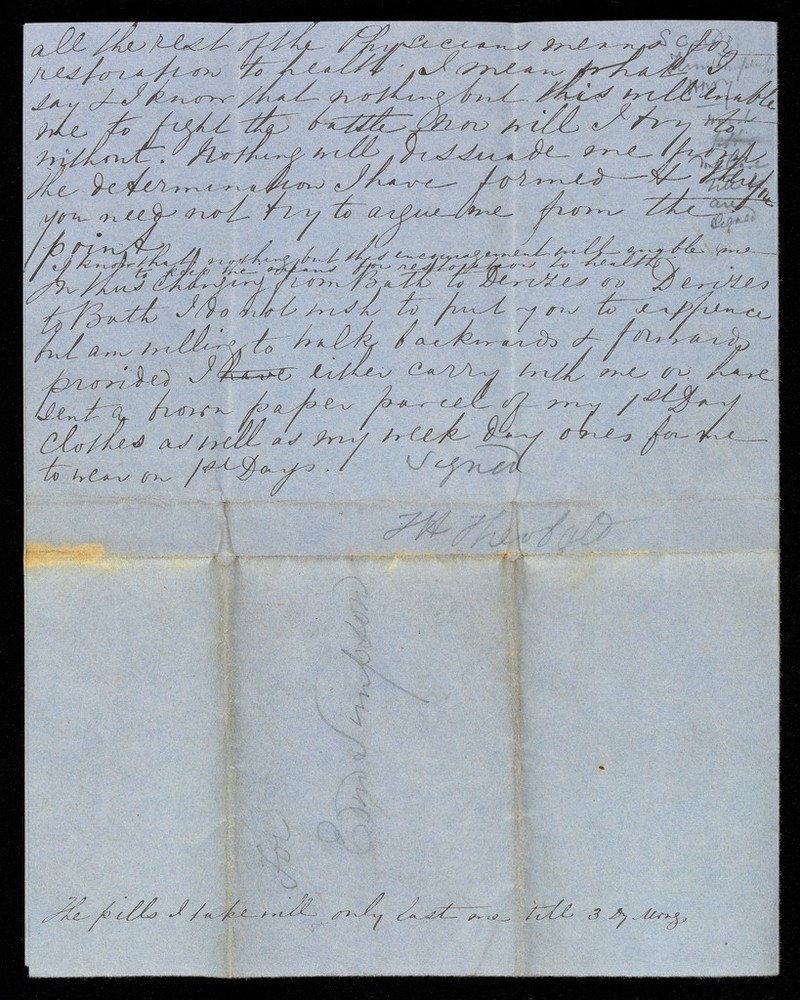 all the rest of the Physicians means for
restoration to health. I mean what I
say & I know that nothing but this will enable
me to fight the battle, nor will I try to
without. Nothing will dissuade me from
the determination I have formed &
you need not try to argue me from the
point
I know that nothing but this encouragement will enable me
to keep the means for restoration to health
In thus changing from Bath to Devizes or Devizes
to Bath I do not wish to put you to expence
but am willing to walk backwards & forwards
provided I have either carry with me or have
sent a brown paper parcel of my 1st Day
Clothes as well as my week day ones for me
to wear on 1st Days.
Signed
FH Theobald
are
Signed
For
Edm Simpson
The pills I take will only last me till 3 Dy Morng